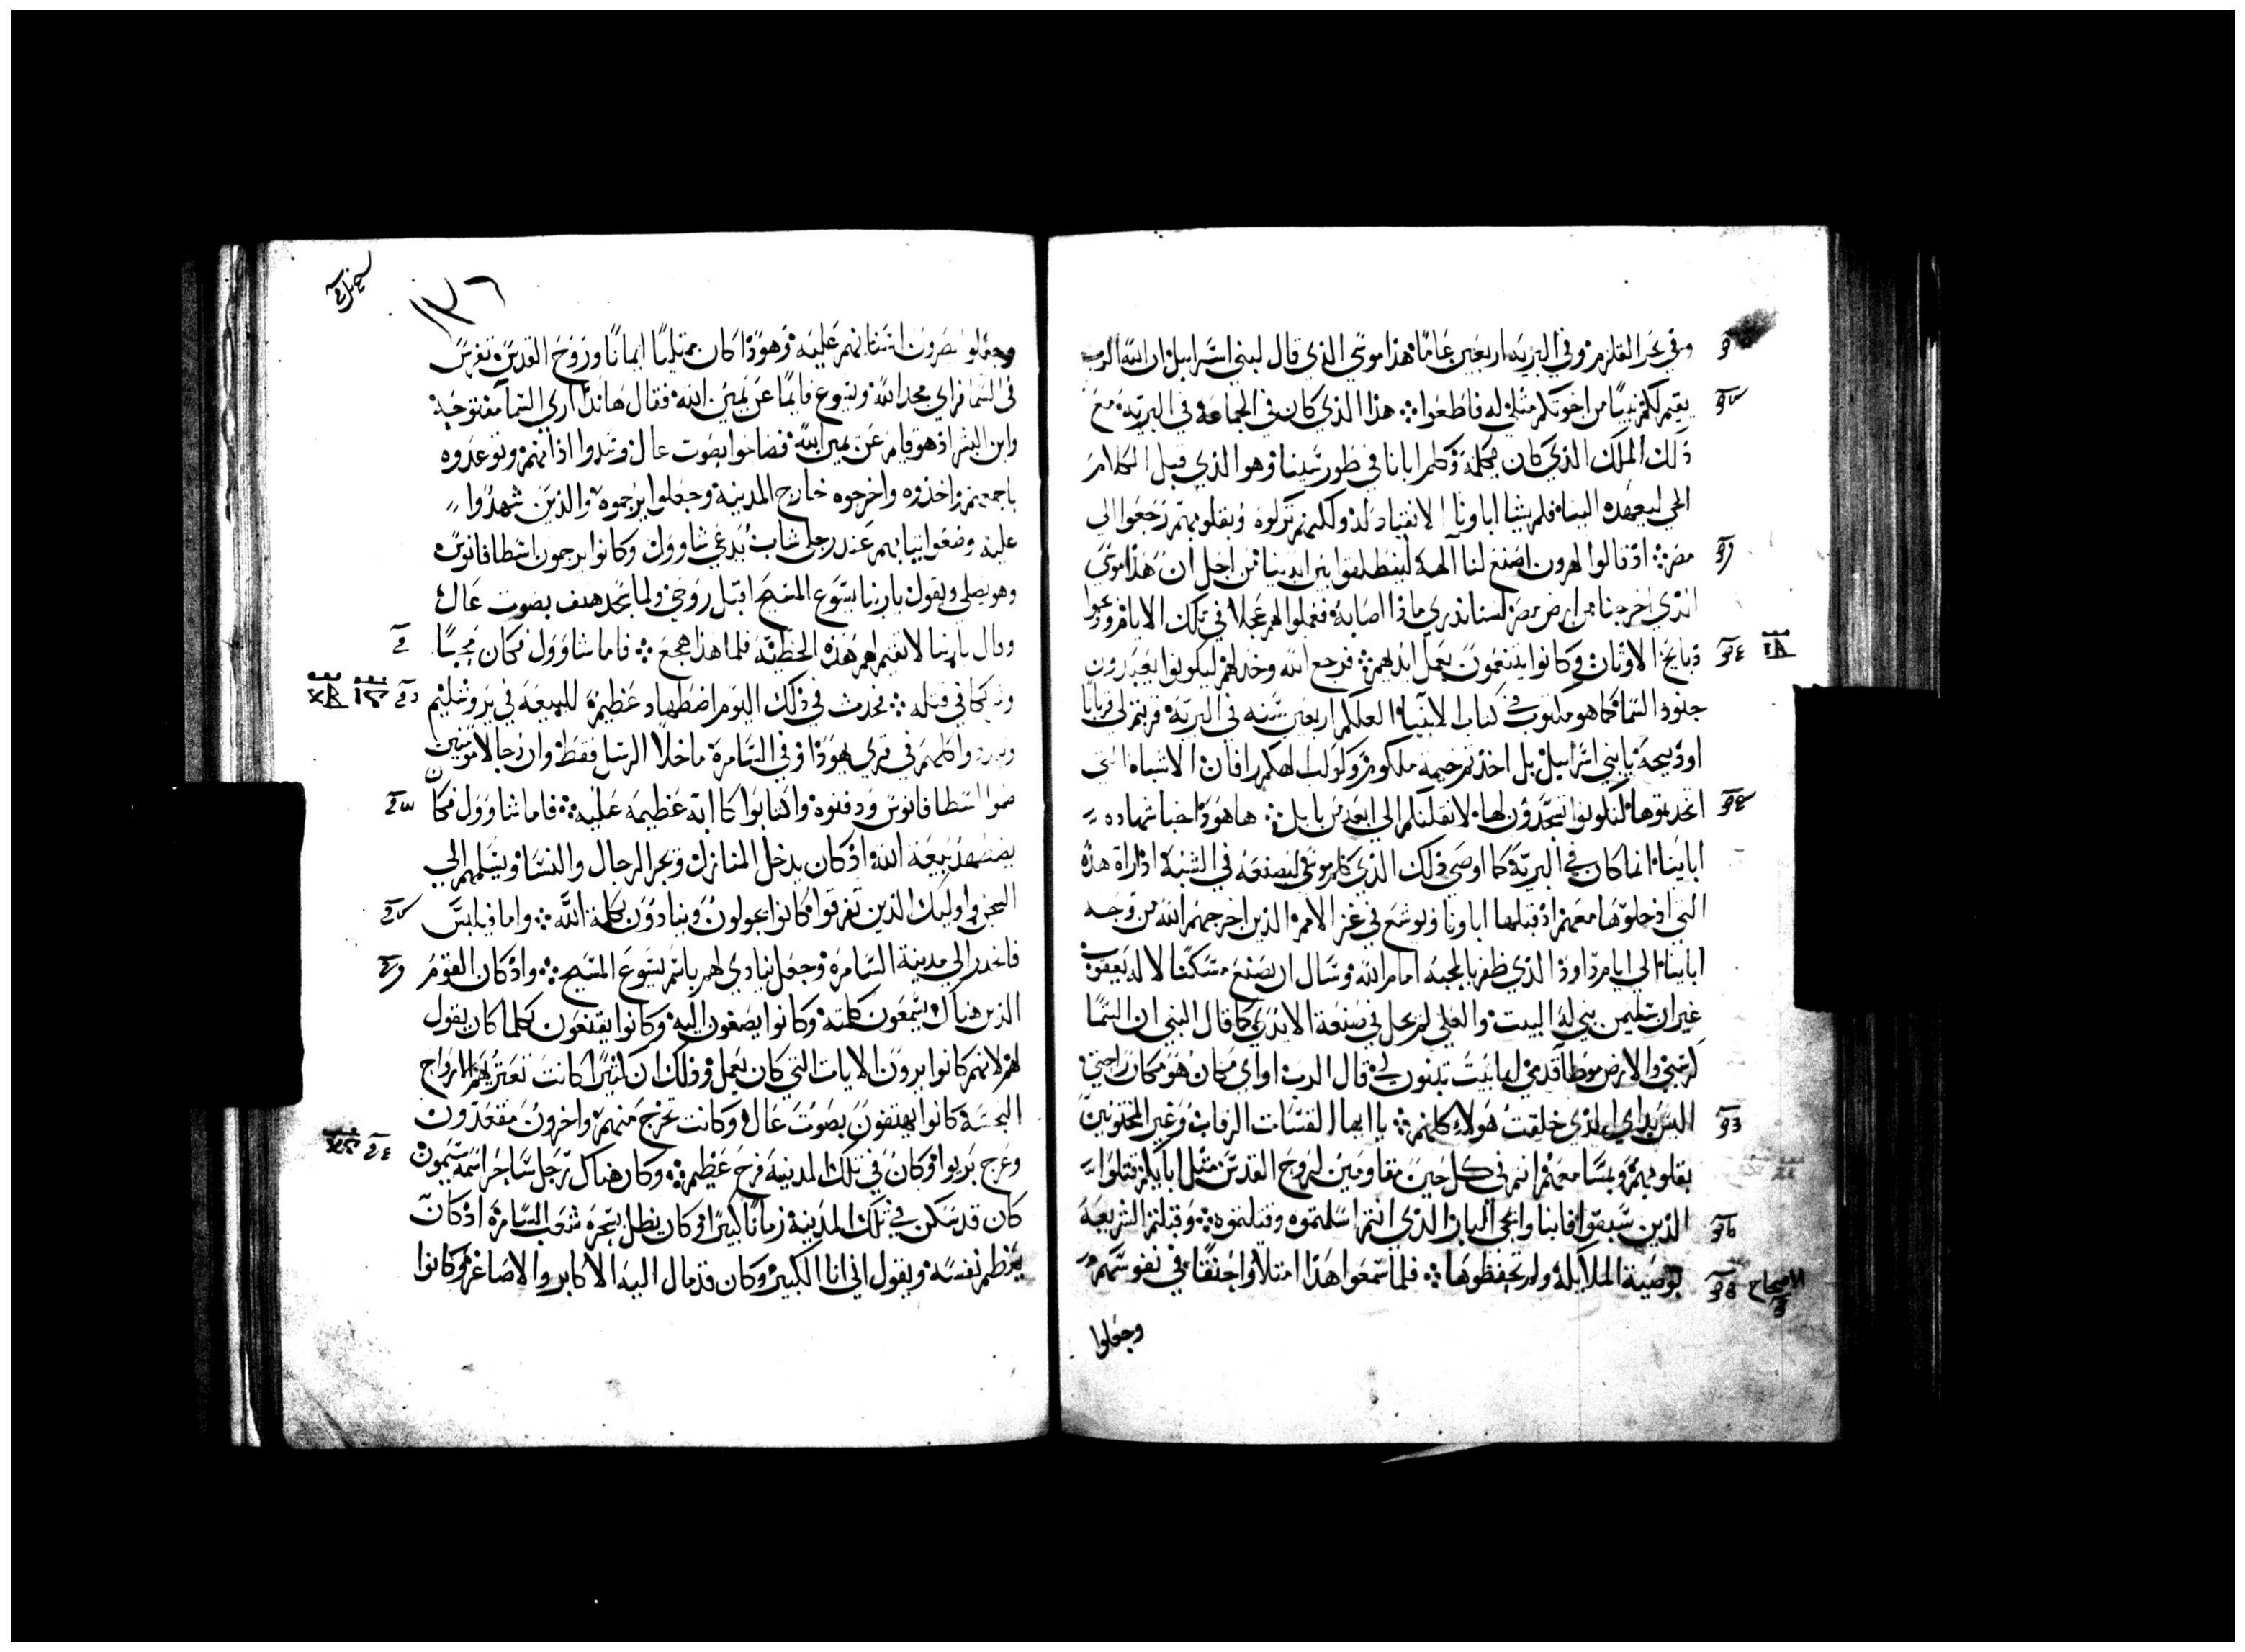 وفي بحر القلزم وفي البريه اربعين عامًا هذا موسي الذي قال لبني اسراييل ان الله الرب
يقيم لكم نبيًا من اخوتكم مثلي له فاطعوا هذا الذي كان في الجماعة في البرية مع
ذلك الملك الذي كان يكلمه وكلم ابانا في طور سينا وهو الذي قبل الكلام
الحي ليعهده الينا فلم يشا اباونا الانقياد له ولكنهم تركوه وبقلوبهم رجعوا الي
مصر اذ قالوا لهرون اصنع لنا آلهة لينطلقوا بين ايدينا من اجل ان هذا موسي
الذي اخرجنا من ارض مصر لسنا ندري ماذا اصابه فعملوا لهم عجلا في تلك الايام وذبحوا
ذبايح الاوثان وكانوا يتنعمون بعمل ايديهم فرجع الله وخذلهم ليكونوا يعبدون
جنود السما كما هو مكتوب في كتاب الانبيا العلكم اربعين سنه في البرية قربتم لي قربانًا
او ذبيحة يا بني اسراييل بل اخذتم خيمة ملكوم وكوكب الهكم رافان الاشباه التي
اتخذتموها لتكونوا تسجدون لها لانقلنكم الي ابعد من بابل ها هوذا خبا شهاده
اباينا انما كان في البرية كما اوصي ذلك الذي كلم موسي ليصنعه في الشبه اذ اراه هذه
التي ادخلوها معهم اذ قبلها اباونا ويوشع في عز الامم الذين اخرجهم الله من وجه
اباينا الي ايام داود الذي ظفر بالمحبه امام الله وسال ان يصنع مسكنًا لاله يعقوب
غير ان سليمن بني له البيت والعلي لم يحل في صنعة الايدي كما قال النبي ان السما
كرسي والارض موطا قدمي ايما بيت تبنون لي قال الرب او اي مكان هو مكان راحتي
اليس يداي خلقت هولاء كلهم يا ايها القساة الرقاب وغير المختونين
بقلوبهم وبمسامعهم انتم في كل حين مقاومين لروح القدس مثل ابايكم قتلوا
الذين سبقوا فانبا وا بمجي البار الذي انتم اسلمتموه وقتلتموه وقبلتم الشريعة
بوصية الملايكة ولم تحفظوها فلما سمعوا هذا امتلاوا حنقًا في نفوسهم
الاصحاح
وجعلوا
١٣٦
وجعلوا يصرون اسنانهم عليه وهوذا كان ممتليًا ايمانًا وروح القدس تفرس
في السما فراي مجد الله ويسوع قايمًا عن يمين الله فقال هانذا اري السما مفتوحة
وابن البشر اذ هو قايم عن يمين الله فصاحوا بصوت عال وسدوا اذانهم وتوعدوه
باجمعهم واخذوه واخرجوه خارج المدينه وجعلوا يرجموه والذين شهدوا
عليه وضعوا ثيابهم عند رجلي شاب يدعي شاوول وكانوا يرجمون اسطافانوس
وهو يصلي ويقول يا ربنا يسوع المسيح اقبل روحي ولما سجد هتف بصوت عال
وقال يا ربنا لا تقيم لهم هذه الخطية فلما هذا هجع فاما شاوول فكان محبًا
في قتله فحدث في ذلك اليوم اضطهاد عظيم للبيعه في يروشليم
كلهم في قري يهوذا وفي السامرة ما خلا الرسل فقط وان رجالا مومنين
ضموا اسطافانوس ودفنوه واكتابوا كابة عظيمه عليه فاما شاوول فكان
يضطهد بيعة الله اذ كان يدخل المنازل ويجر الرجال والنسا ويسلمهم الي
السجن واوليك الذين تفرقوا كانوا يجولون وينادون بكلمة الله واما فيلبس
فانحدر الي مدينة السامرة وجعل ينادي لهم باسم يسوع المسيح واذ كان القوم
الذين هناك يسمعون كلمته وكانوا يصغون اليه وكانوا يقتنعون بكلما كان يقول
لهم لانهم كانوا يرون الايات التي كان يعمل وذلك ان كثيرًا كانت تعتريهم الارواح
النجسة كانوا يهتفون بصوت عال وكانت تخرج منهم واخرون مقعدون
وعرج بريوا وكان في تلك المدينة فرح عظيم وكان هناك رجل ساحر اسمه سيمون
كان قد سكن في تلك المدينة زمانًا كبيرًا وكان يضل بسحره شعب السامرة اذ كان
يعظم نفسه ويقول اني انا الكبير وكان قد مال اليه الاكابر والاصاغر وكانوا